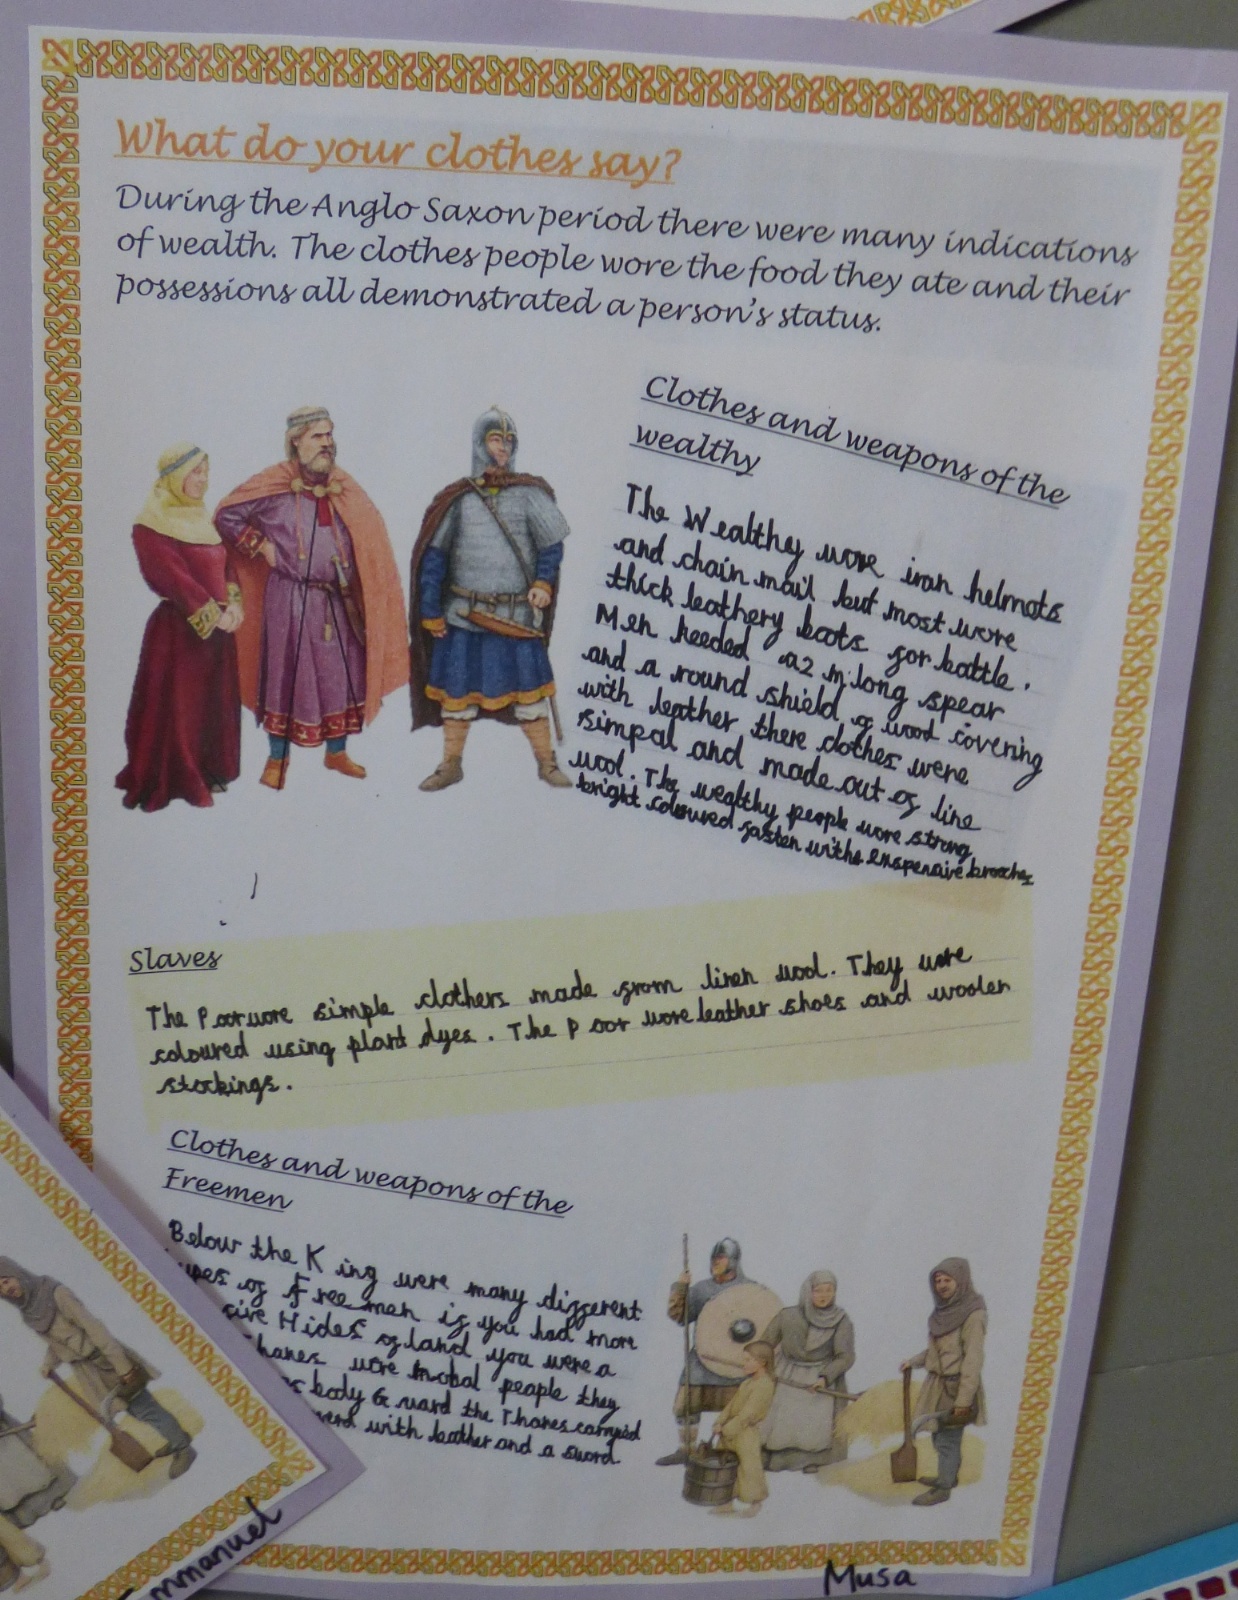 What do your clothes say?
During the Anglo Saxon period there were many indications
of wealth. The clothes people wore the food they ate and their
possessions all demonstrated a person's status.
Clothes and weapons of the
wealthy
The Wealthey wore iron helmots
and chain mail but most wore
thick leathery boots for battle.
Men needed a 2 m long spear
and a round shield of wood covering
with leather there clothes were
simpal and made out of line
wool. The wealthy people wore strong
bright coloured fasten withs enspensive brooches
Slaves
The Poor wore simple clothers made from linen wool. They were
coloured using plant dyes. The Poor wore leather shoes and woolen
stockings.
Clothes and weapons of the
Freemen
Below the King were many different
of Freemen if you had more
five Hides of land you were a
were mobal people they
body Guard the Thanes carryied
with leather and a sword
Musa